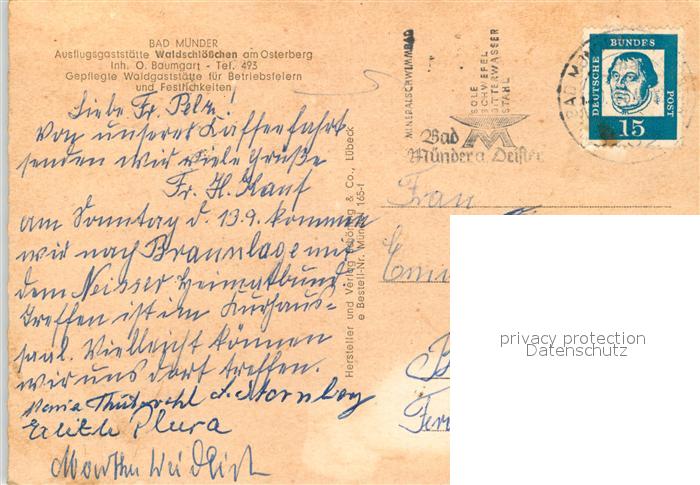 BAD MÜNDER
Ausflugsgaststätte Waldschlößchen am Osterberg
Inh. O. Baumgart - Tel. 493
Gepflegte Waldgaststätte für Betriebsfeiern
und Festlichkeiten
Liebe Fr. Pelz!
Von unserer Kaffeefahrt
senden wir viele Grüße
Fr. H. Kauf
am Sonntag d. 13.9. kommen
wir nach Braunlage mit
dem Neisser Heimatbund
Treffen ist im Kurhaus-
saal. Vielleicht können
wir uns dort treffen.
Maria
Edith Plura
Martha Weidlich
Hersteller und Verlag & Co., Lübeck
e Bestell-Nr. Mün 165-f
MINERALSCHWIMMBAD
SOLE
SCHWEFEL
BITTERWASSER
STAHL
Bad
Münder a Deister
BAD MÜN
DEUTSCHE
BUNDES
POST
15
Frau
privacy protection
Datenschutz